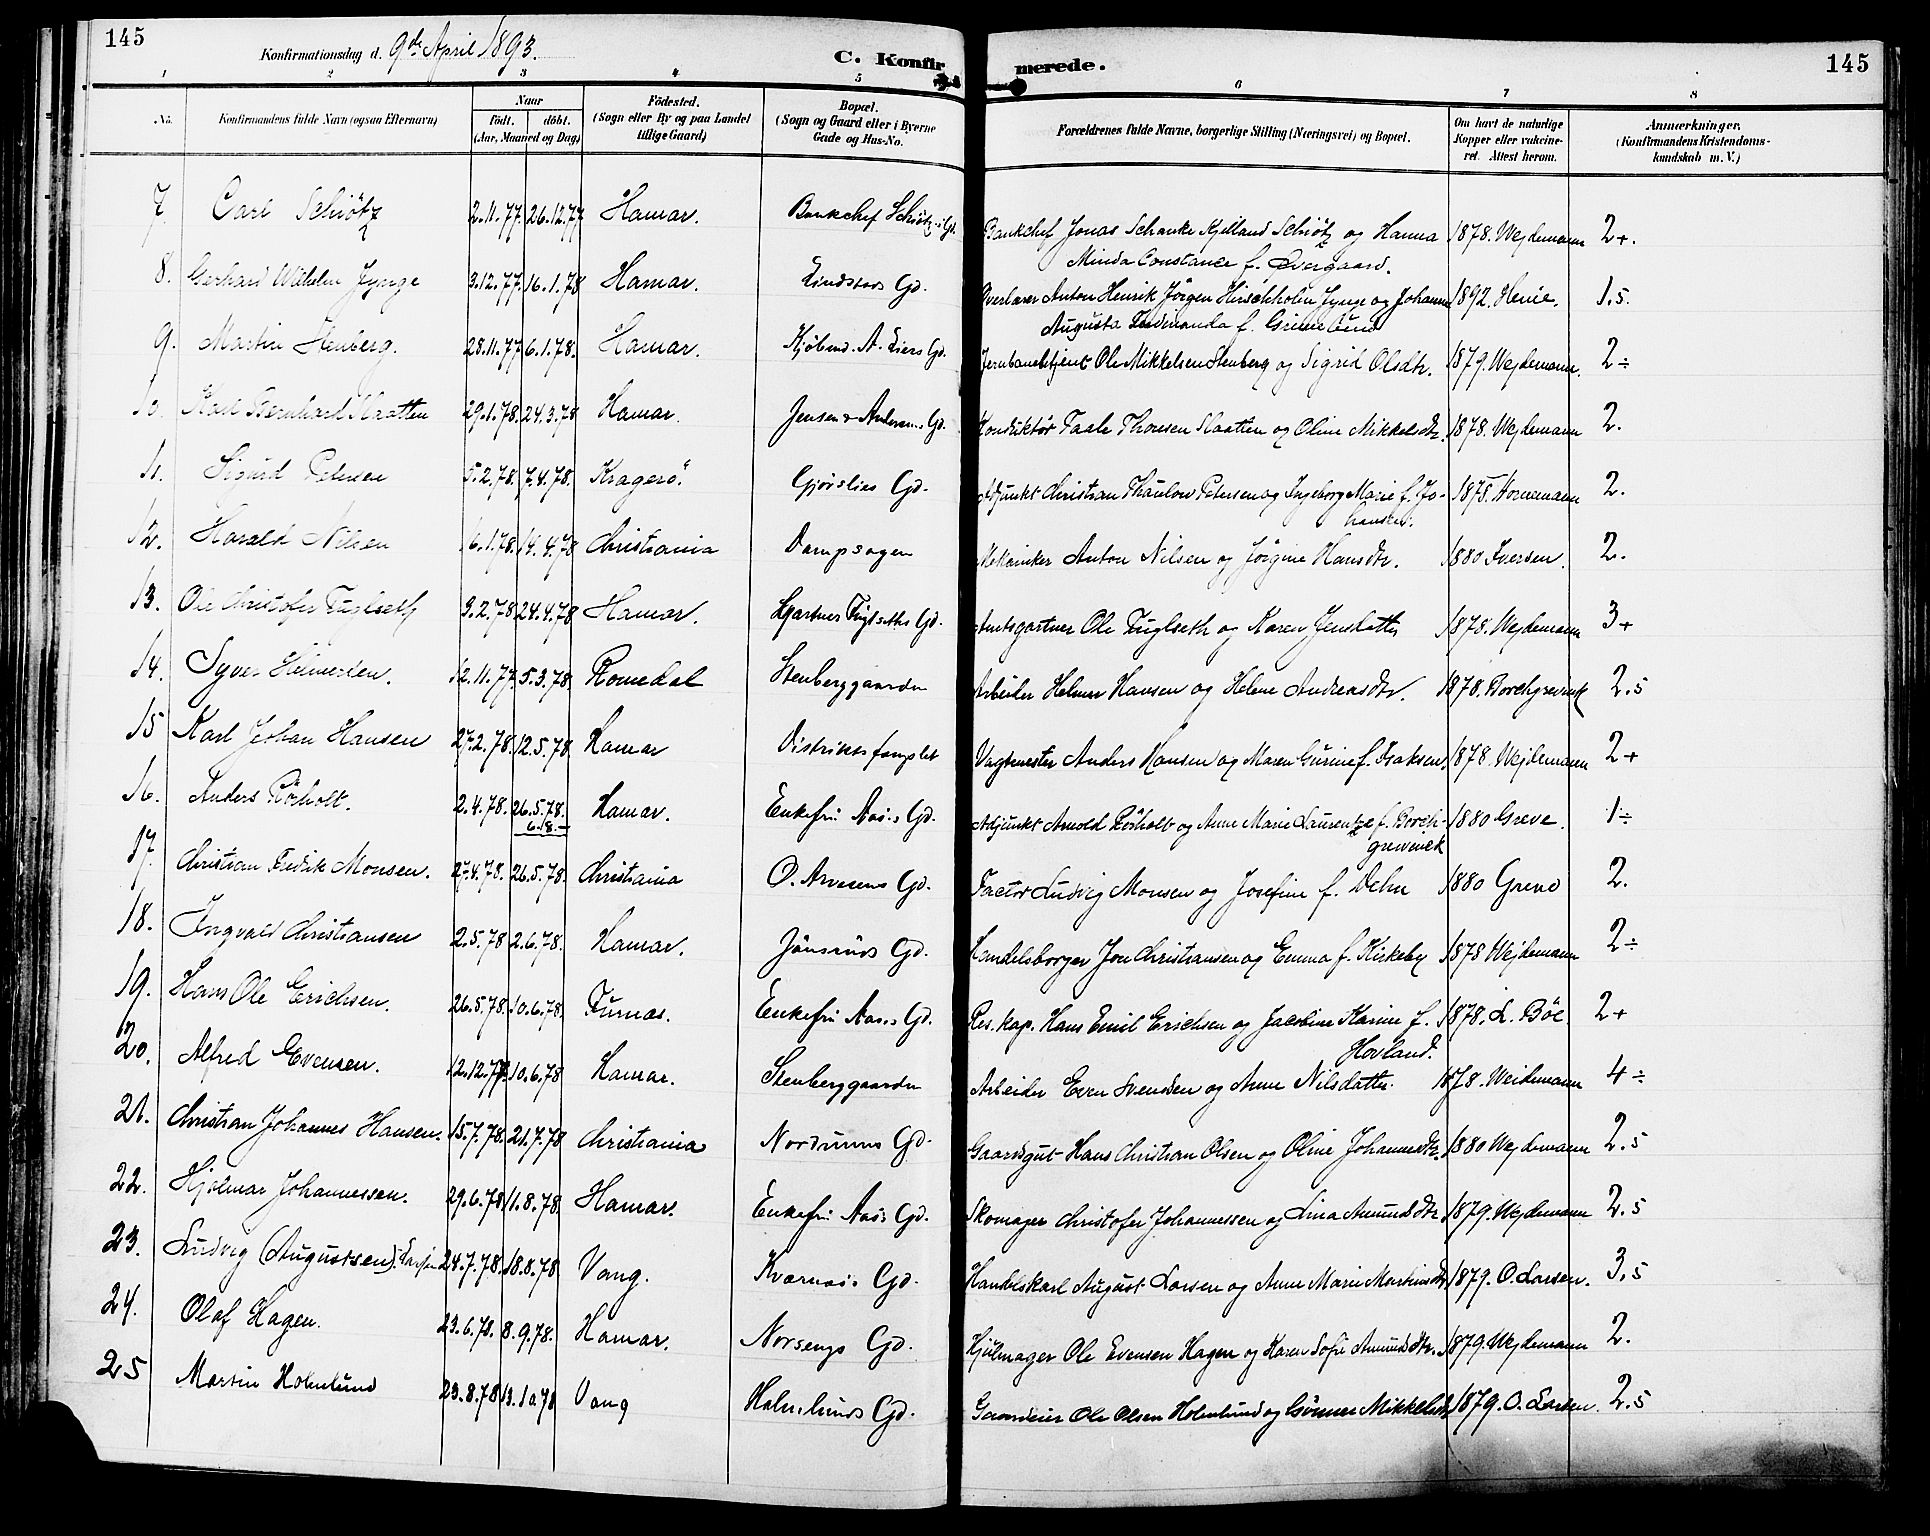 145
Konfirmationsdag d. 9de April 1893.
C. Konfirmerede.
145
1 2 3 4 5 6 7 8
No.
Konfirmandens fulde Navn (ogsaa Efternavn)
Naar
födt. döbt.
(Aar, Maaned og Dag)
Födested.
(Sogn eller By og paa Landet
tillige Gaard)
Bopæl.
(Sogn og Gaard eller i Byerne
Gade og Hus-No.
Forældrenes fulde Navne, borgerlige Stilling (Næringsvei) og Bopæl.
Om havt de naturlige
Kopper eller vakcine-
ret. Attest herom.
Anmærkninger.
(Konfirmandens Kristendoms-
kundskab m. V.)
7. Carl Schiötz 2.11.77. 26.12.77 Hamar. Bankchef Schiötz's Gd. Bankchef Jonas Schanke Kjelland Schiötz og Hanna 1878. Wejdemann 2+.
Minda Constance f. Overgaard.
8. Gerhard Wilhelm Jynge 3.12.77. 16.1.78 Hamar. Lindstads Gd. Overlærer Anton Henrik Jörgen Hirschholm Jynge og Johanne 1892. Henie. 1.5.
Augusta Ferdinanda f. Grimelund
9. Martin Stenberg. 28.11.77 6.1.78. Hamar. Kjöbmd. A. Liers Gd. Jernbanebetjent Ole Mikkelsen Stenberg og Sigrid Olsdtr. 1879. Wejdemann. 2÷
10. Karl Bernhard Slaatten 29.1.78. 24.3.78 Hamar. Jensen & Andersens Gd. Konduktör Taale Thomsen Slaatten og Oline Mikkelsdtr. 1878. Wejdemann 2.
11. Sigurd Petersen 5.2.78. 7.4.78. Kragerö. Gjörslies Gd. Adjunkt Christian Thaulow Petersen og Ingeborg Marie f. Jo- 1878. Hornemann 2.
hansen.
12. Harald Nilsen 16.1.78. 14.4.78 Christiania Dampsagen Mekaniker Anton Nilsen og Jörgine Hansdtr. 1880 Iversen. 2.
13. Ole Christofer Fuglseth 9.2.78 24.4.78 Hamar. Gartner Fuglseths Gd. Amtsgartner Ole Fuglseth og Karen Jensdatter 1878. Wejdemann 3+
14. Syver Helmersen. 12.11.77. 5.3.78. Romedal Stenberggaarden Arbeider Helmer Hansen og Helene Andreasdtr. 1878. Borchgrevink 2.5
15 Karl Johan Hansen 27.2.78. 12.5.78. Hamar Distriktsfængslet Vagtmester Anders Hansen og Maren Gurine f. Isaksen. 1878. Wejdemann 2+
16. Anders Röholt. 2.4.78. 26.5.78. Hamar. Enkefru Aas's Gd. Adjunkt Arnold Röholt og Anne Marie Laurentze f. Borch- 1880 Greve. 1÷
grevinck
17. Christian Fredrik Monsen. 27.4.78. 26.5.78. Christiania O. Arvesens Gd. Factor Ludvig Monsen og Josefine f. Dehn 1880 Greve 2.
18. Ingvald Christiansen 2.5.78 2.6.78. Hamar. Jönsrüds Gd. Handelsborger Jon Christiansen og Emma f. Kirkeby 1878 Wejdemann 2÷
19. Hans Ole Erichsen. 26.5.78. 10.6.78. Furnæs. Enkefru Aas's Gd. Res. kap. Hans Emil Erichsen og Jacobine Karine f. 1878. L. Böe. 2+
Hovland.
20. Alfred Evensen. 12.12.77. 10.6.78 Hamar. Stenberggaarden Arbeider Even Svendsen og Anne Nilsdatter. 1878. Weidemann 4÷
21. Christian Johannes Hansen. 15.7.78. 21.7.78 Christiania Nordrums Gd. Gaardsgut Hans Christian Olsen og Oline Johannesdtr. 1880 Wejdemann 2.5
22. Hjalmar Johannessen. 29.6.78. 11.8.78. Hamar. Enkefru Aas's Gd. Skomager Christofer Johannessen og Lina Amundsdtr. 1879. Wejdemann 2.5
23. Ludvig (Augustsen) Larsen 24.7.78. 18.8.78 Vang. Kværnaas Gd. Handelskarl August Larsen og Anne Marie Martinsdtr. 1879. O. Larsen. 3,5
24. Olaf Hagen. 23.6.78. 8.9.78. Hamar. Norsengs Gd. Hjulmager Ole Evensen Hagen og Karen Sofie Amundsdtr. 1879. Wejdemann 2.
25 Martin Holmlund 23.8.78 13.10.78 Vang Holmlunds Gd. Gaardeier Ole Olsen Holmlund og Gunner Mikkelsdtr. 1879. O. Larsen. 2.5